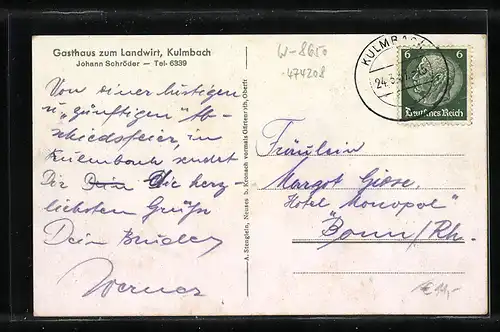 Gasthaus zum Landwirt, Kulmbach
Johann Schröder — Tel. 6339
W-8650
474208
KULMBACH
24.3.
6 6
Deutsches Reich
Von einer lustigen
u. "zünftigen" Ab-
schiedsfeier, in
Kulmbach sendet
Dir Dein die herz-
lichsten Grüße
Dein Bruder
Werner
A. Stenglein, Neuses b. Kronach vormals Gürtenreith, Oberfr.
Fräulein
Margot Giese.
Hotel "Monopol"
Bonn/Rh.